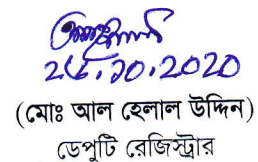 ২৮.১০.২০২০
(মোঃ আল হেলাল উদ্দিন)
ডেপুটি রেজিস্ট্রার